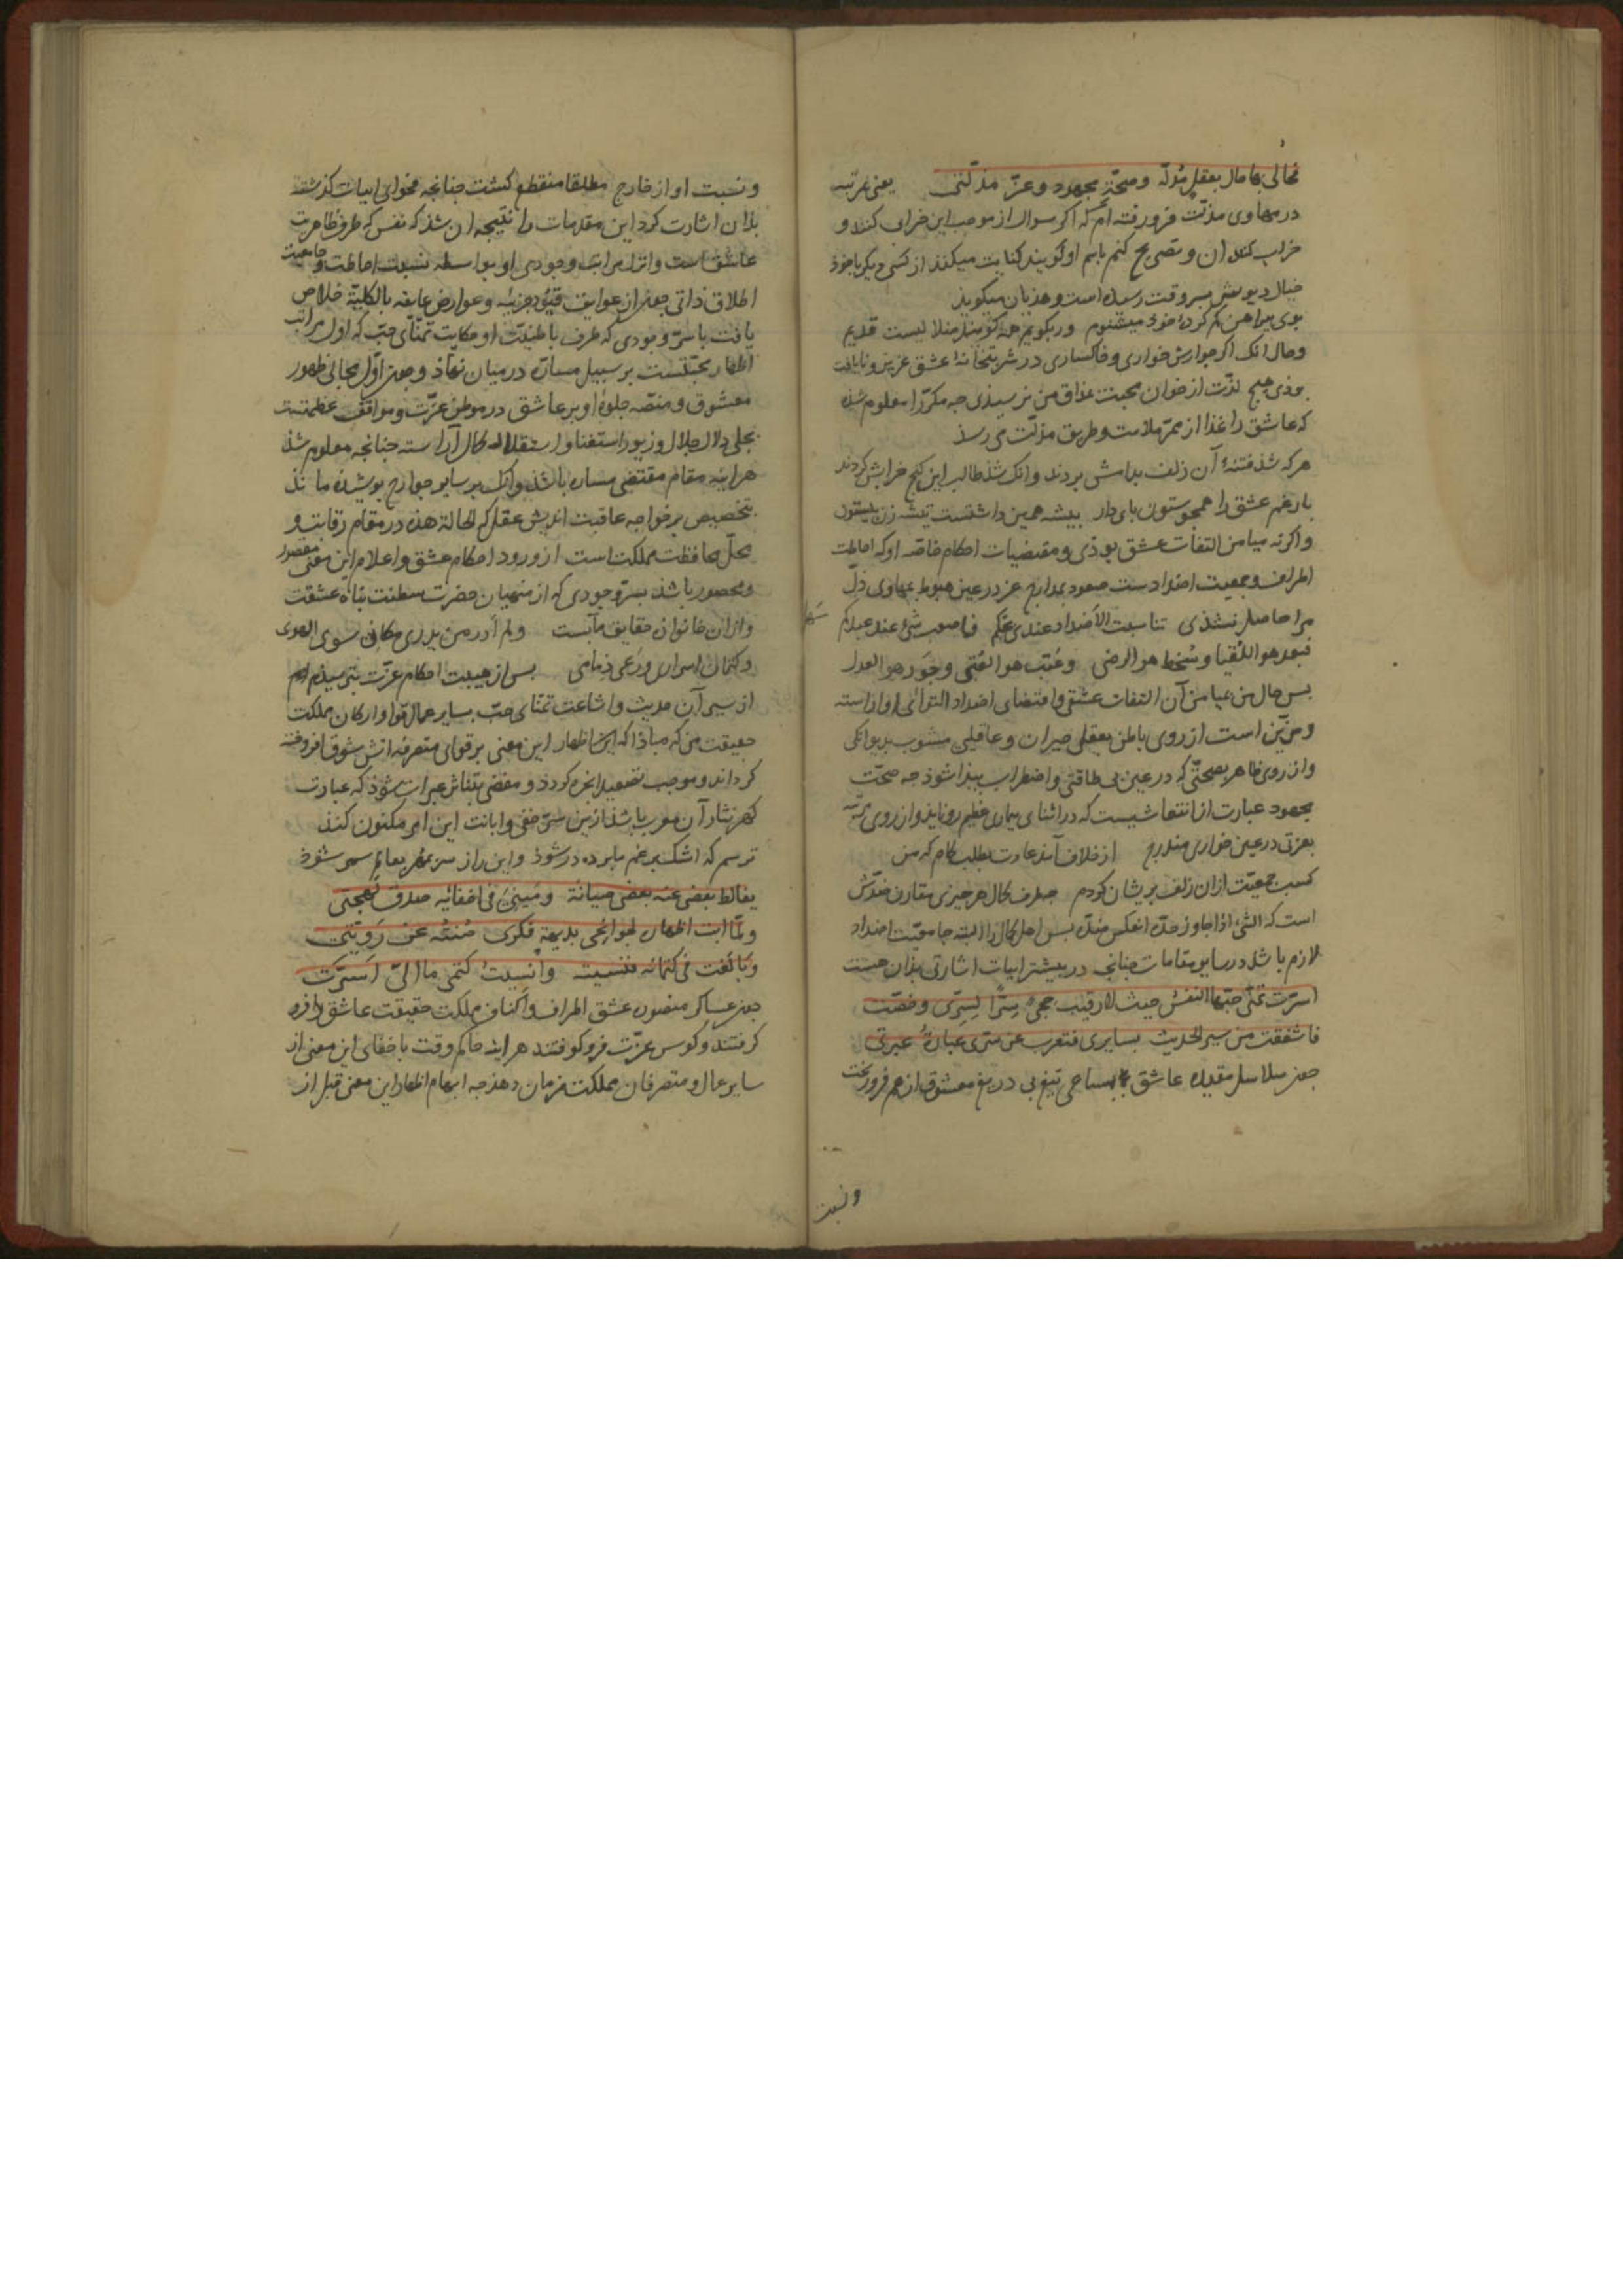 فحالی بها حال بعقل مدله وصحة مجهود وعز مذلتی یعنی مرتبه
در مهاوی مذلت فرو رفته‌ام که اکر سوال از موجب این خرابی کنند و
خراب کننده ان و تصریح کنم باسم او کویند کنایت میکند از کسی دیکر یا خود
خیال دیویش بسروقت رسیده است و هذیان میکوید
بوی بیراهن کم کرده خود میشنوم ور بکویم همه کویند ضلالیست قدیم
وحال انک اکر جوارش خواری و خاکساری در شربتخانهٔ عشق عزیز و نایافت
بودی هیچ لذت از خوان محبت بمذاق من نرسیدی جه مکررا معلوم شده
که عاشق را غذا از ممر ملامت و طریق مذلت می رسد
هر که شد فتنهٔ آن زلف بدامش بردند وانک شد طالب این کنج خرابش کردند
بار غم عشق را همجو ستون بای دار بیشه همین داشتست تیشه زن بیستون
واکر نه میامن التفات عشق بودی و مقتضیات احکام خاصه او که احاطت
اطراف و جمعیت اضدادست صعود بمدارج عز در عین هبوط بمهاوی ذل
مرا حاصل نشدی تناسبت الأضداد عندی بحبکم فیا صعب شیء عند عبدکم
فبعد هو اللقیا وسخط هو الرضی وعتب هو العتبی وجور هو العدل
بس حال من میامن آن التفات عشق و اقتضای اضداد التزامی او اراسته
و مزین است از روی باطن بعقلی حیران و عاقلیی منسوب بدیوانکی
واز روی ظاهر بصحتی که در عین بی طاقتی و اضطراب بیدا شود جه صحت
مجهود عبارت از انتعاشیست که در اثنای بیماری عظیم رو نماید واز روی مرتبه
بعزتی در عین خواری مندرج از خلاف آمد عادت بطلب کام که من
کسب جمعیت ازان زلف بریشان کردم جه طرف کمال هر چیزی مقارن ضدش
است که الشیء اذا جاوز حده انعکس ضده بس اهل کمال را البته جامعیت اضداد
لازم باشد در سایر مقامات جنانجه در بیشتر ابیات اشارتی بدان هست
اسرت تمنی حبها النفس حیث لا رقیب حجی سرا لسری وخصت
فاشفقت من سیر الحدیث بسایری فتعرب عن سری عبارة عبرتی
جون سلاسل مقیده عاشق بسیاحی تیغ بی دریغ معشوق از هم فرو ریخت
ونسبت
ونسبت او از خارج مطلقا منقطع کشت جنانجه فحوای ابیات کذشته
بدان اشارت کرد این مقدمات را نتیجه ان شد که نفس که طرف ظاهریت
عاشق است وانزل مراتب وجودی او بواسطه نسبت احاطت و جامعیت
اطلاق ذاتی جون از عوایق قیود جزئیه و عوارض عایقه بالکلیة خلاص
یافت با سر وجودی که طرف باطنیت او حکایت تمنای حب که اول مراتب
اظهار محبتست بر سبیل مساره در میان نهاد وجون اول مجالی ظهور
معشوق و منصه جلوهٔ او بر عاشق در موطن عزت و مواقف عظمتست
بحلی دلال جلال و زیور استغنا و استقلال کمال آراسته جنانجه معلوم شد
هراینه مقام مقتضی مساره باشد وانک بر سایر جوارح بوشیده ماند
بتخصیص بر خواجه عاقبت اندیش عقل که الحالة هذه در مقام رقابت و
محل محافظت مملکت است از ورود احکام عشق و اعلام این معنی مقصور
ومحصور باشد بسر وجودی که از منهیان حضرت سلطنت بناه عشقت
وازان خانوادهٔ حقایق مآبست ولم أدر من یدری مکانی سوی الهوی
وکتمان اسراری ورعی ذمامی بس از هیبت احکام عزت می‌ترسیدم
از سیر آن حدیث و اشاعت تمنای حب بسایر عمال قوا و ارکان مملکت
حقیقت من که مبادا که این اظهار این معنی بر قوای متصرفه اتش شوق افروخته
کرداند و موجب تصعید ابخره کردد و مفضی بتناثر عبرات شود که عبارت
کهر نثار آن معرب باشد ازین سر خفی و ابانت این امر مکنون کند
ترسم که اشک بر غم ما برده در شود واین راز سر بمهر بعالم سمر شود
یغالط بعضی عنه بعضی صیانة ومینی فی اخفائه صدق لهجتی
ولما ابت اظهاره لجوانحی بدیهة فکری صنته عن رویتی
وبالغت فی کتمانه فنسیته وأنسیت کتمی ما الی أسرت
جون عساکر منصور عشق اطراف و اکناف مملکت حقیقت عاشق را فرو
کرفتند و کوس عزت فرو کوفتند هراینه حاکم وقت باخفای این معنی از
سایر عمال و متصرفان مملکت فرمان دهد جه ابهام اظهار این معنی قبل از